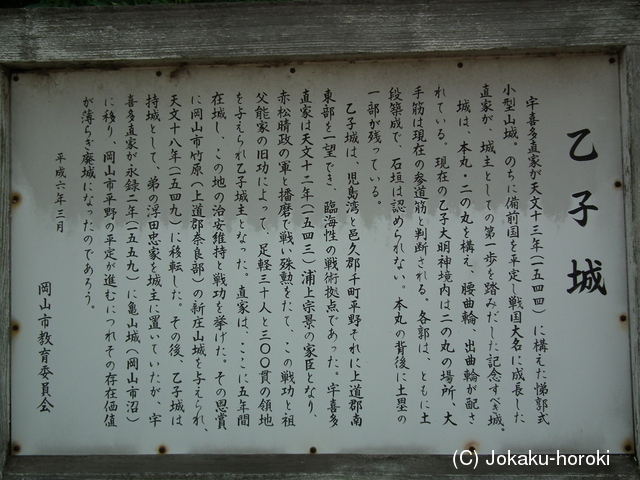 乙子城
宇喜多直家が天文十三年(一五四四)に構えた悌郭式
小型山城、のちに備前国を平定し戦国大名に成長した
直家が、城主としての第一歩を踏みだした記念すべき城。
城は、本丸・二の丸を構え、腰曲輪、出曲輪が配さ
れている。現在の乙子大明神境内は二の丸の場所、大
手筋は現在の参道筋と判断される。各郭は、ともに土
段築成で、石垣は認められない。本丸の背後に土塁の
一部が残っている。
乙子城は、児島湾と邑久郡千町平野それに上道郡南
東部を一望でき、臨海性の戦術拠点であった。宇喜多
直家は天文十二年(一五四三)浦上宗景の家臣となり、
赤松晴政の軍と播磨で戦い殊勲をたて、この戦功と祖
父能家の旧功によって、足軽三十人と三〇〇貫の領地
を与えられ乙子城主となった。直家は、ここに五年間
在城し、この地の治安維持と戦功を挙げた。その恩賞
に岡山市竹原(上道郡奈良部)の新庄山城を与えられ、
天文十八年(一五四九)に移転した。その後、乙子城は
持城として、弟の浮田忠家を城主に置いていたが、宇
喜多直家が永録二年(一五五九)に亀山城(岡山市沼)
に移り、岡山市平野の平定が進むにつれその存在価値
が薄らぎ廃城になったのであろう。
平成六年三月
岡山市教育委員会
(C) Jokaku-horoki